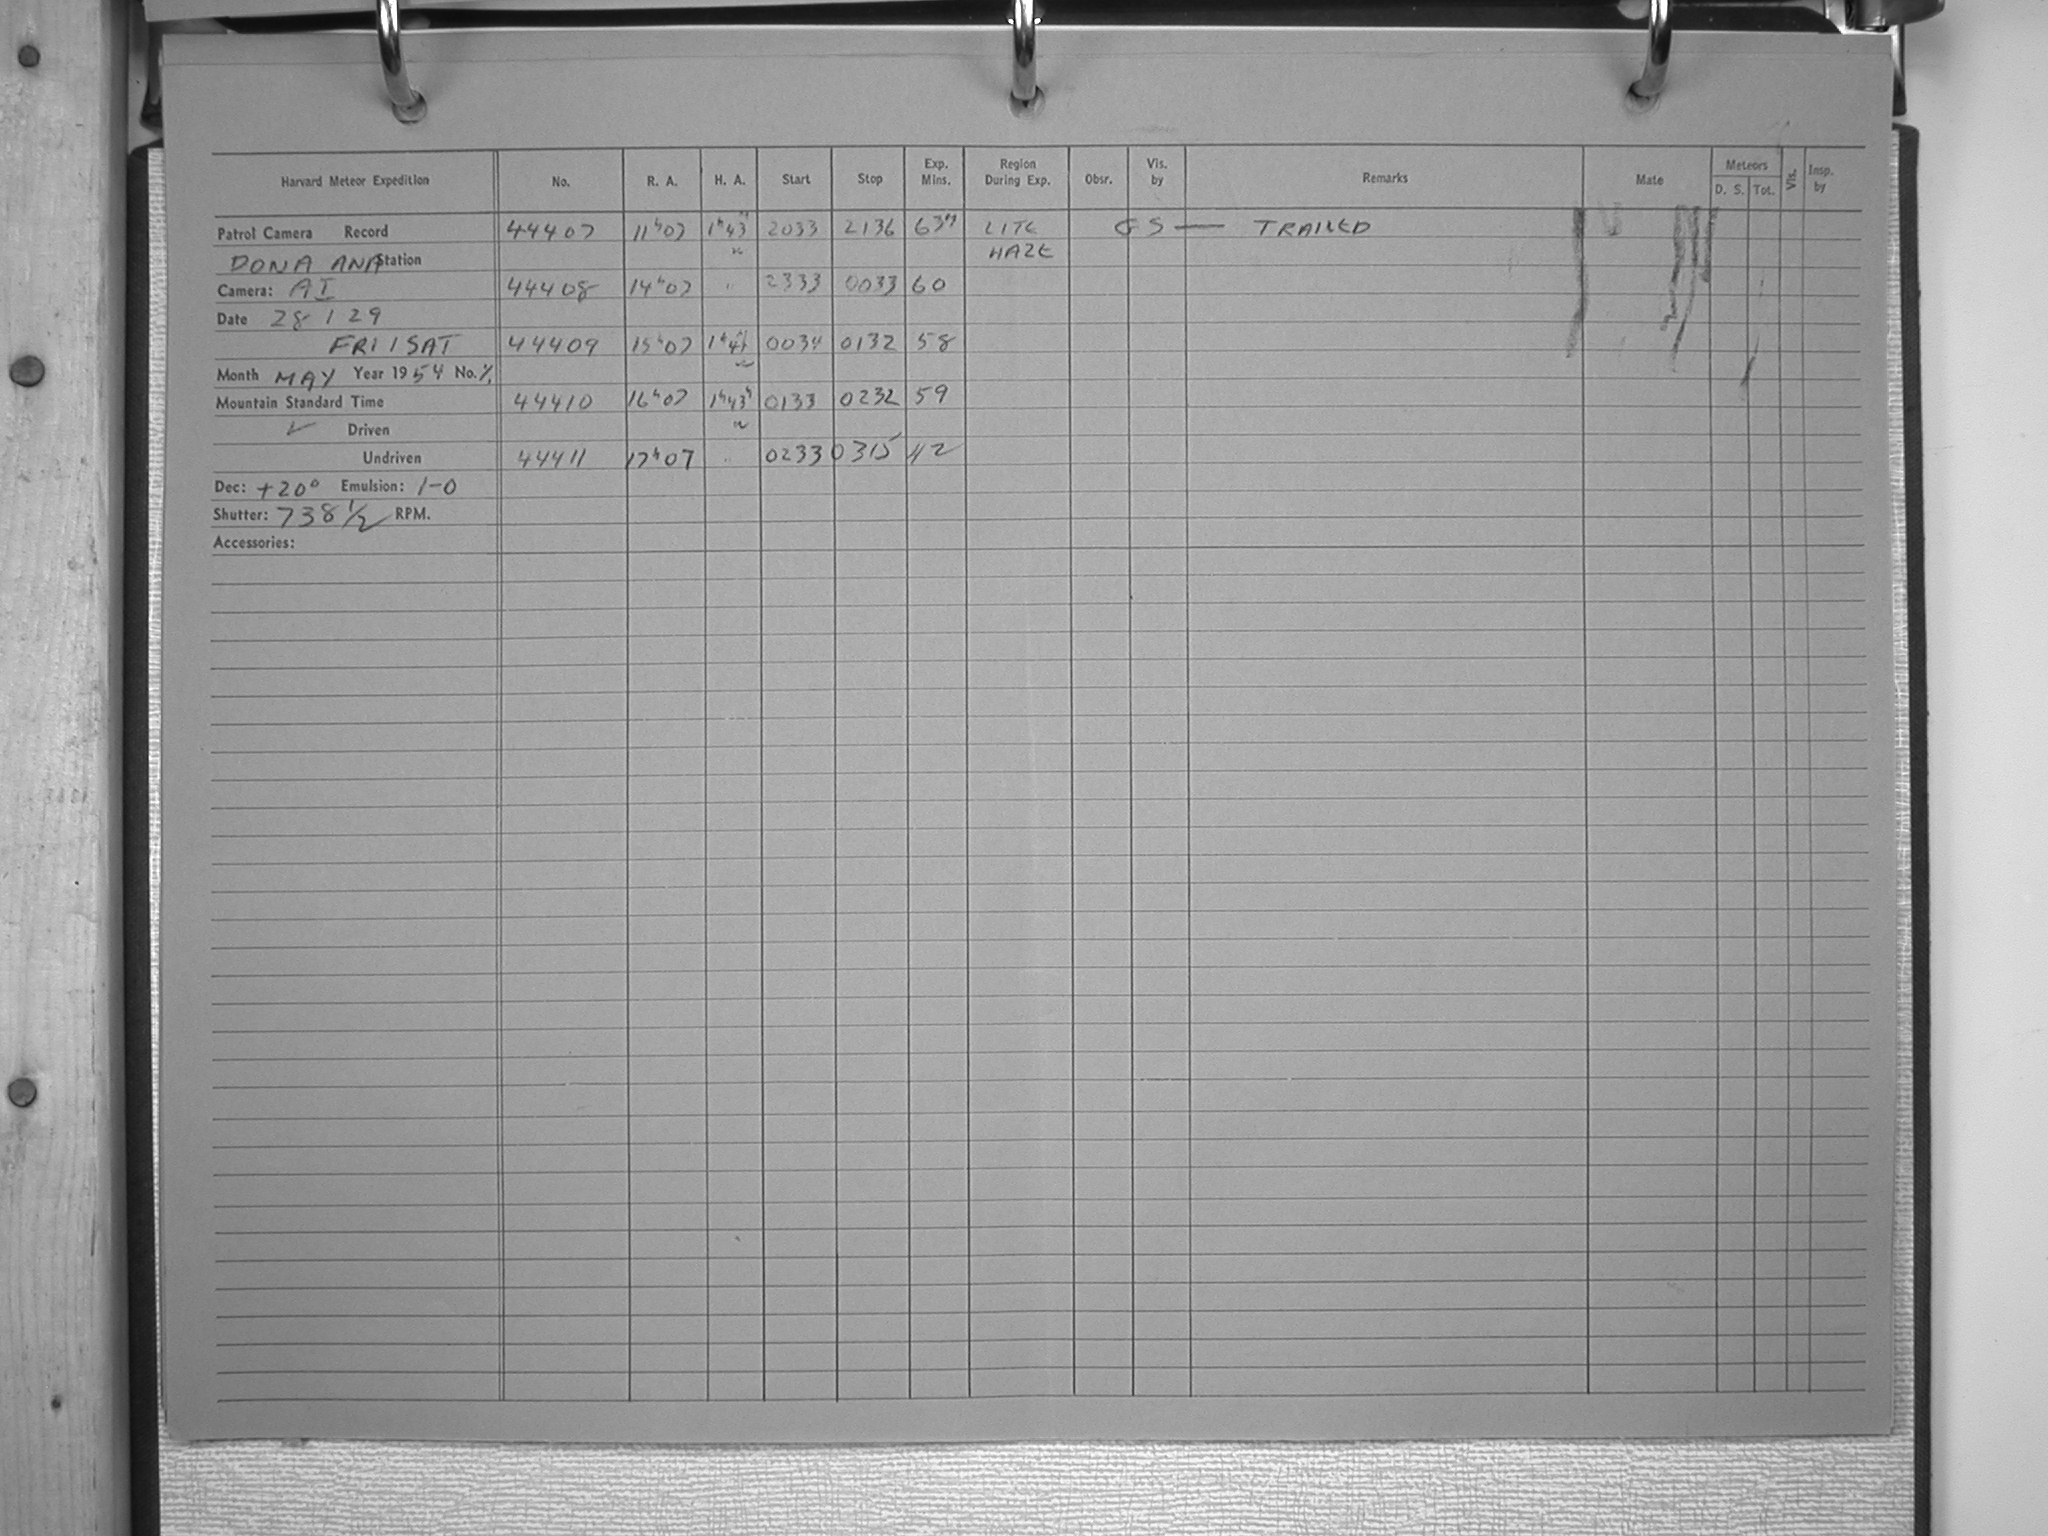 Harvard Meteor Expedition No. R. A. H. A. Start Stop Exp. Mins. Region During Exp. Obsr. Vis. by Remarks Mate Meteors D. S. Tot. Vis. Insp. by
Patrol Camera Record 44407 11ʰ07 1ʰ43ᵐ 2033 2136 63ᵐ LITE GS — TRAILED
DONA ANA Station w HAZE
Camera: AI 44408 14ʰ07 " 2333 0033 60
Date 28 / 29
FRI / SAT 44409 15ʰ07 0034 0132 58
w
Month MAY Year 1954 No.
Mountain Standard Time 44410 16ʰ07 1ʰ43ᵐ 0133 0232 59
✓ Driven w
Undriven 44411 17ʰ07 " 0233 0315 42
Dec: +20° Emulsion: 1-0
Shutter: 738 1/2 RPM.
Accessories: